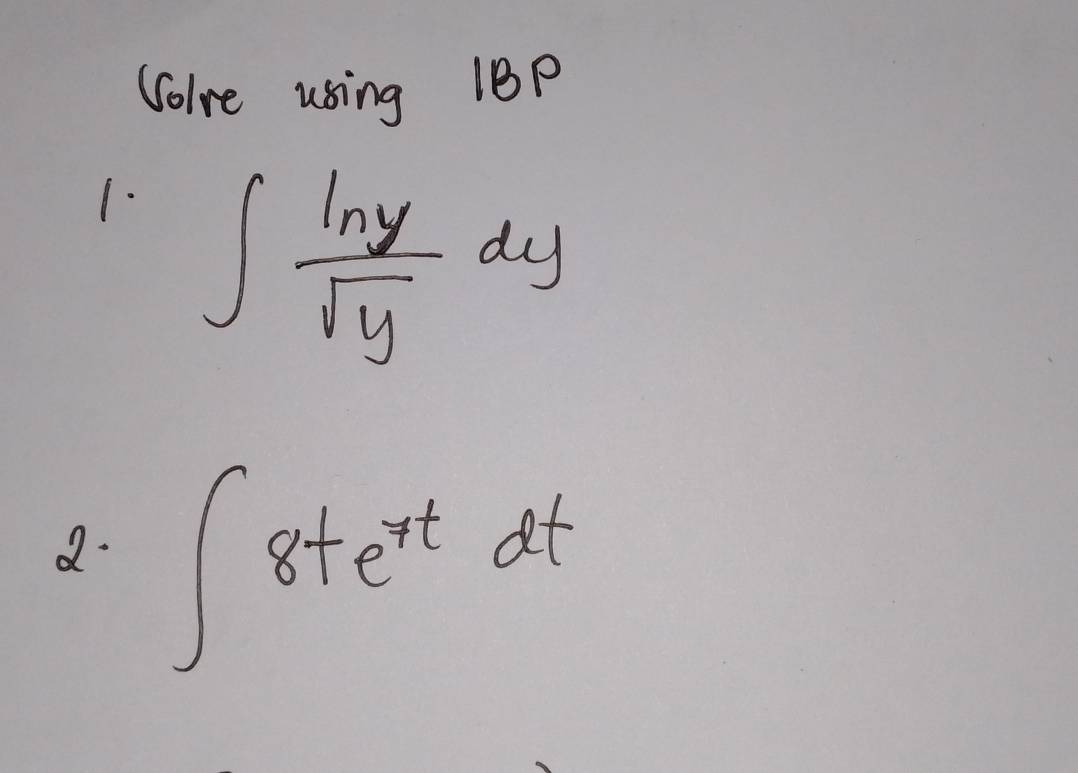 Solve using IBP
1. ∫ lny/√y dy
2. ∫ 8te^7t dt